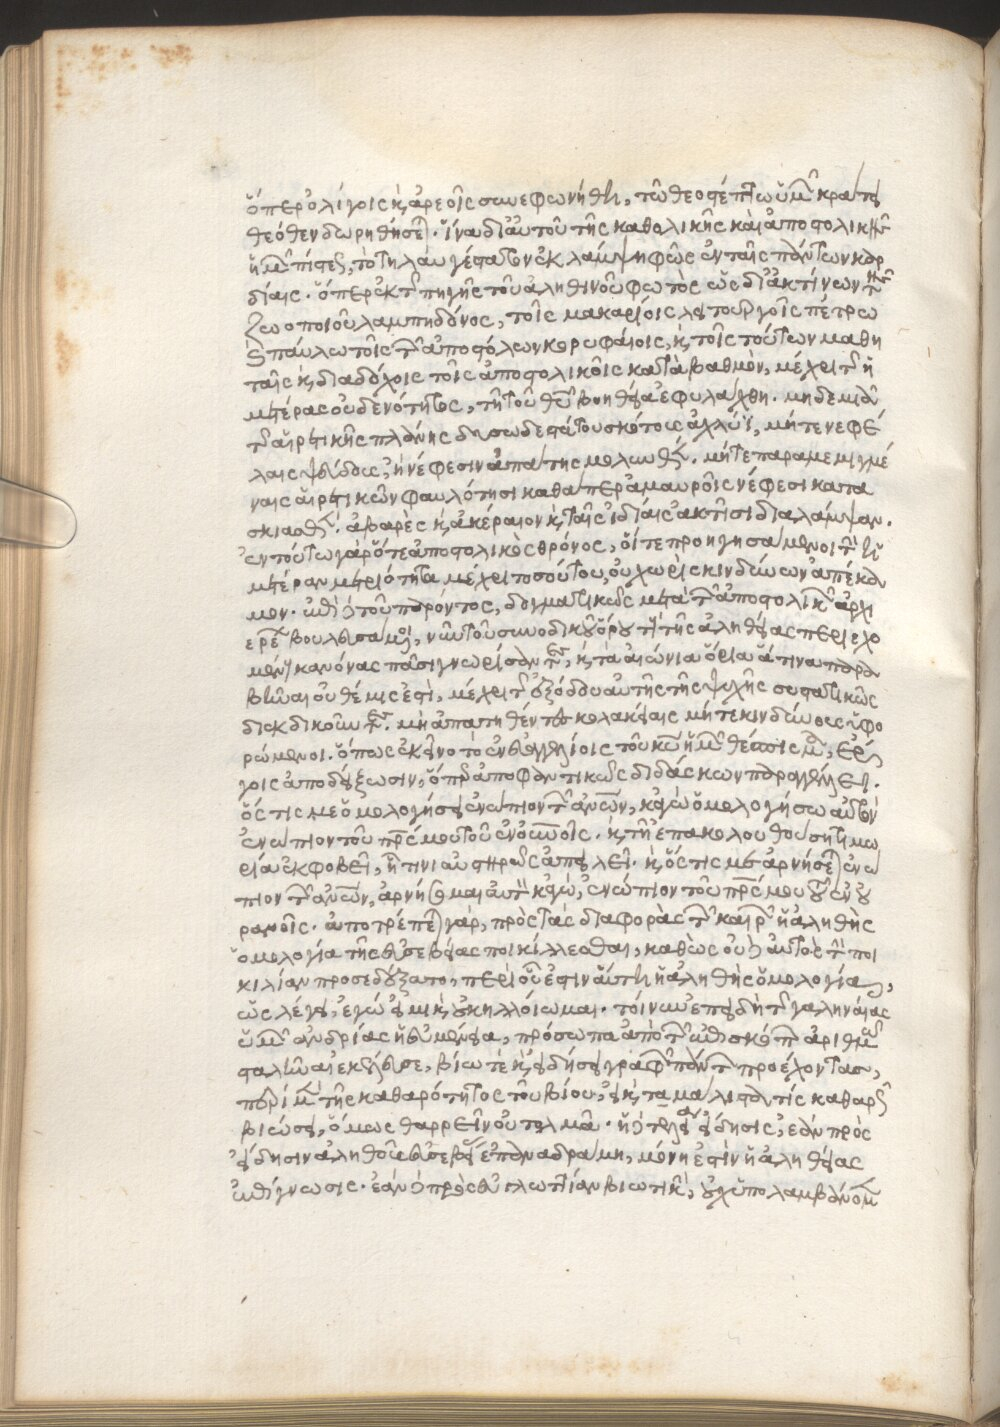 ὅπερ ὀλίγοις κ ἀρεοῖς συνεφωνήθη, τῶ θεοσέπτω ὑμῶν κράτει
θεόθεν δωρηθήσεται. ἵνα δι αὐτοῦ τῆς καθολικῆς καὶ ἀποστολικῆς
ἡμῶν πίστεως, τὸ τηλαυγέστατον ἐκλάμψη φῶς ἐν ταῖς πάντων καρ
δίαις. ὅπερ ἐκ τῆς πηγῆς τοῦ ἀληθινοῦ φωτὸς ὡς δι ἀκτίνων τῆς
ζωοποιοῦ λαμπηδόνος, τοῖς μακαρίοις λειτουργοῖς πέτρω
κ παύλω τοῖς τῶν ἀποστόλων κορυφαίοις, κ τοῖς τούτων μαθη
ταῖς κ διαδόχοις τοῖς ἀποστολικοῖς κατὰ βαθμὸν, μέχρι τῆς ἡ
μετέρας οὐδενότητος, τῇ τοῦ θεοῦ βοηθεία ἐφυλάχθη. μηδεμιᾶ
τῆς αἱρετικῆς πλάνης δυσωδεστάτου σκότους ἀχλύϊ, μήτε νεφέ
λαις ψεύδους, ἢ νέφεσιν ἀπάτης μολυνθὲν. μήτε παραμεμιγμέ
ναις αἱρετικῶν φαυλότησι καθαπερ ἀμαυροῖς νέφεσι κατα
σκιασθὲν. ἀβαρὲς κ ἀκέραιον κ ταῖς ἰδίαις ἀκτῖσι διαλάμψαν.
ἐν τούτω γὰρ ὅ τε ἀποστολικὸς θρόνος, οἵ τε προηγησαμενοι τὴν ἡ
μετέραν μετριότητα μέχρι τοσούτου, οὐ χωρὶς κινδύνων ἀπέκα
μον. ἐπὶ δὲ τοῦ παρόντος, δογματικῶς μετὰ τῶν ἀποστολικῶν ἀρχι
ερέων βουλευσαμενοι, νῦν τοῦ συνοδικοῦ ὅρου τὴν τῆς ἀληθείας περιεχο
μένην κανόνας πᾶσι γνωρίσαντες, κ τὰ αἰώνια ὅρια ἅτινα παρα
βῆναι οὐ θέμις ἐστὶ, μέχρι τῆς ἐξόδου αὐτῆς τῆς ψυχῆς συστατικῶς
διεκδικοῦντες. μὴ ἀπατηθέντες κολακείαις μήτε κινδύνους ὑφο
ρώμενοι. ὅπως ἐκεῖνο τὸ ἐν εὐαγγελίοις τοῦ κυρίου ἡμῶν θέσπισμα, ἔρ
γοις ἀποδείξωσιν, ὅπερ ἀποφαντικῶς διδάσκων παραγγέλλει.
ὅς τις με ὁμολογήσει ἐνωπιον τῶν ἀνων, κἀγὼ ὁμολογήσω αὐτὸν
ἐνώπιον τοῦ πρς μου τοῦ ἐν οὐνοῖς. κ τῇ ἐπακολουθούση τιμω
ρία ἐκφοβεῖ, ἥτινι αὐστηρῶς ἀπειλεῖ. κ ὅς τις με ἀρνήσεται ἐνώ
πιον τῶν ἀνων, ἀρνήσομαι αὐτὸν κἀγὼ, ἐνώπιον τοῦ πρς μου τοῦ ἐν οὐ
ρανοῖς. ἀποτρέπεται γὰρ, πρὸς τὰς διαφορὰς τῶν καιρῶν ἡ ἀληθὴς
ὁμολογία τῆς εὐσεβείας ποικίλλεσθαι, καθὼς οὐδὲ αὐτὸς τὴν ποι
κιλίαν προσεδέξατο, περὶ οὗ ἐστιν αὕτη ἡ ἀληθὴς ὁμολογία,
ὡς λέγει, ἐγώ εἰμι κ οὐκ ἠλλοίωμαι. τοίνυν ἐπειδὴ τῆς γαληνότητος
ὑμῶν ἀνδρίας ἡ εὐμένεια, πρόσωπα ἀπὸ τῶν ἐπισκόπων ἀριθμὸν
σταλῆναι ἐκέλευσε, βίω τὲ κ εἰδήσει γραφῶν πάντων προέχοντας,
περὶ μὲν τῆς καθαρότητος τοῦ βίου, εἰ κ τα μάλιστα τὶς καθαρῶς
βιώσει, ὅμως θαρρεῖν οὐ τολμᾶ. ἡ δὲ τελεία εἴδησις, ἐὰν πρὸς
εἴδησιν ἀληθοῦς εὐσεβείας ἐπαναδράμη, μόνη ἐστὶν ἡ ἀληθείας
ἐπίγνωσις. ἐὰν δὲ πρὸς εὐγλωττίαν βιωτικὴν, οὐχ ὑπολαμβάνομεν